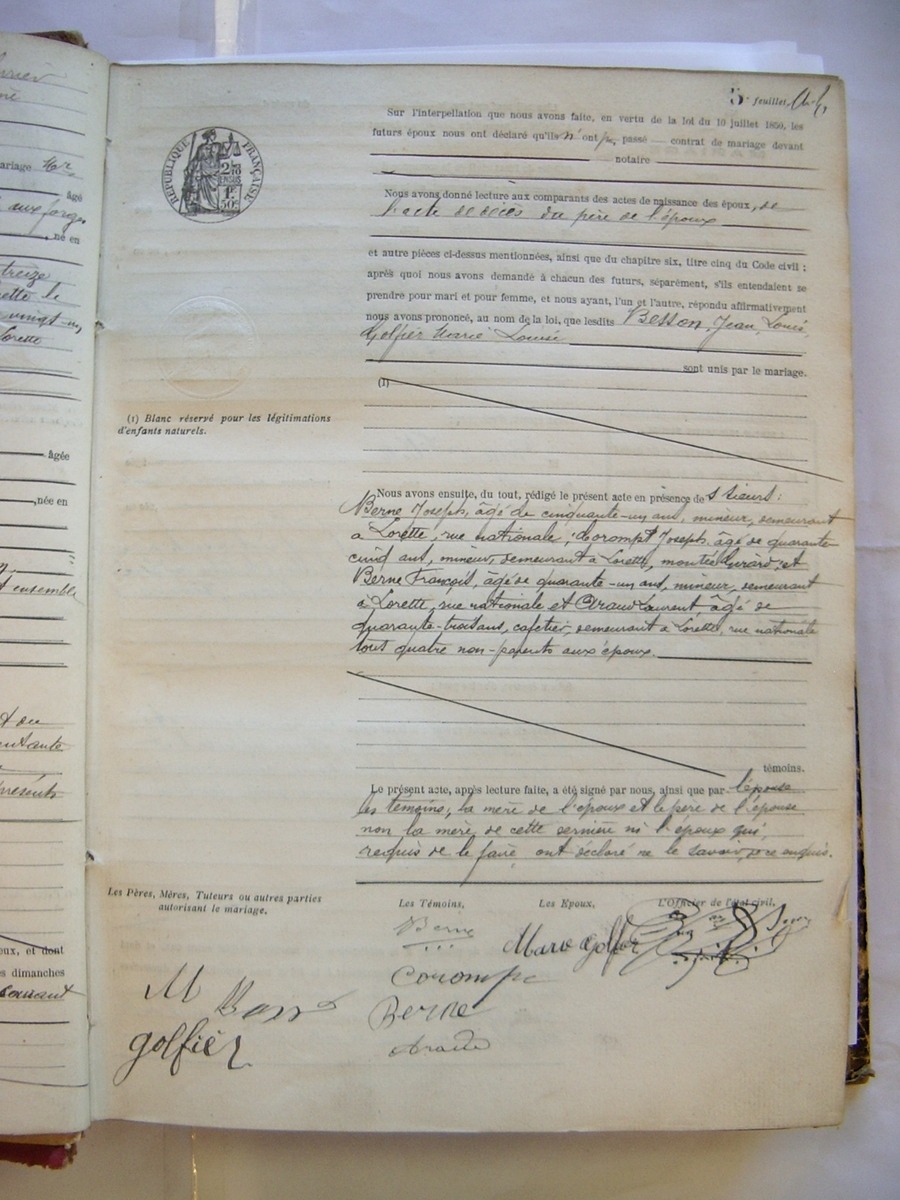 5e feuillet,
Sur l'interpellation que nous avons faite, en vertu de la loi du 10 juillet 1850, les
futurs époux nous ont déclaré qu'ils n'ont p. passé — contrat de mariage devant
notaire
Nous avons donné lecture aux comparants des actes de naissance des époux, de
l'acte de décès du père de l'époux
et autre pièces ci-dessus mentionnées, ainsi que du chapitre six, titre cinq du Code civil ;
après quoi nous avons demandé à chacun des futurs, séparément, s'ils entendaient se
prendre pour mari et pour femme, et nous ayant, l'un et l'autre, répondu affirmativement
nous avons prononcé, au nom de la loi, que lesdits Besson, Jean, Louis,
Golfier Marie Louise
sont unis par le mariage.
(1)
(1) Blanc réservé pour les légitimations
d'enfants naturels.
Nous avons ensuite, du tout, rédigé le présent acte en présence de s sieurs :
Berne Joseph, âgé de cinquante-un ans, mineur, demeurant
à Lorette, rue nationale, Corompt Joseph, âgé de quarante-
cinq ans, mineur, demeurant à Lorette, montée et
Berne François, âgé de quarante-un ans, mineur, demeurant
à Lorette, rue nationale et Laurent, âgé de
quarante-trois ans, cafetier, demeurant à Lorette, rue nationale
tous quatre non-parents aux époux.
témoins.
Le présent acte, après lecture faite, a été signé par nous, ainsi que par l'épouse
les témoins, la mère de l'époux et le père de l'épouse
non la mère de cette dernière ni l'époux qui,
requis de le faire, ont déclaré ne le savoir, de ce enquis.
Les Pères, Mères, Tuteurs ou autres parties
autorisant le mariage.
Les Témoins,
Les Epoux,
L'Officier de l'état civil,
Berne
Marie Golfier
Corompt
M
Berne
golfier
RÉPUBLIQUE FRANÇAISE
2/10
EN SUS
1F
50c